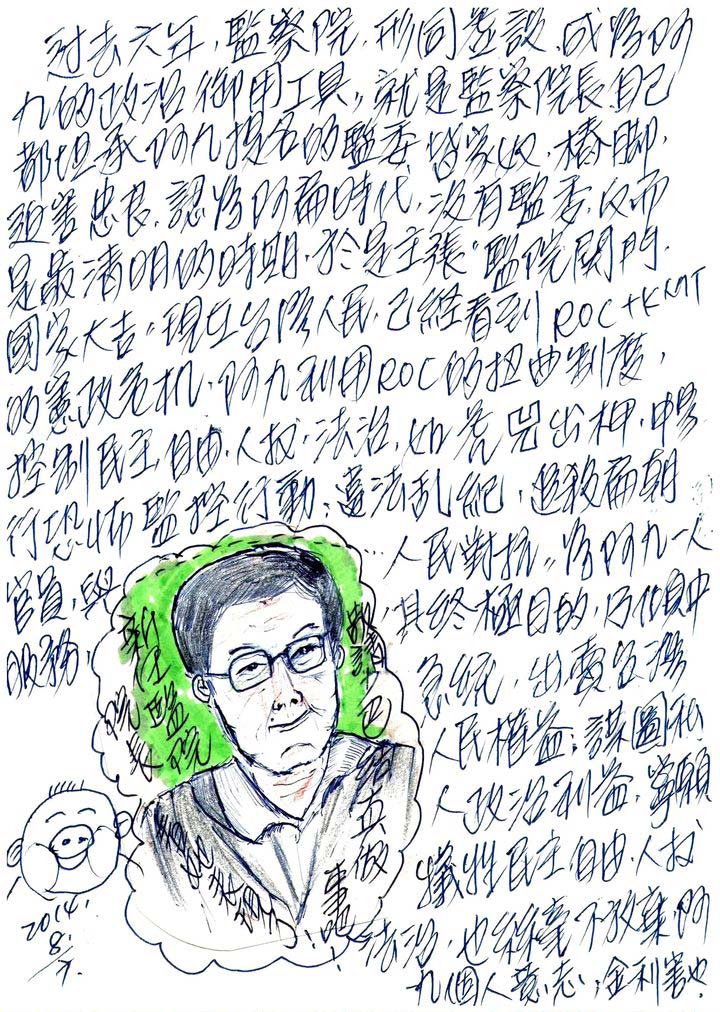 過去六年，監察院，形同虛設，成為阿
九的政治御用工具，就是監察院長自己
都坦承阿九提名的監委皆家奴，樁腳，
迫害忠良，認為阿扁時代，沒有監委，反而
是最清明的時期，於是主張"監院關門，
國家大吉"現在台灣人民，已經看到ROC+KMT
的憲政危机，阿九利用ROC的扭曲制度，
控制民主，自由，人权，法治，如虎兕出柙，
行恐怖監控行動，違法乱紀，追殺扁朝
官員，與
人民對抗，為阿九一人
服務，
其終極目的，乃傾中
急統，出賣台灣
人民權益，謀圖私
人政治利益，寧願
犧牲民主，自由，人权
法治，也絲毫不放棄阿
九個人意志，金利害也。
新任監院
院長
巴結
真做
事吧！
2014.
8.
7.